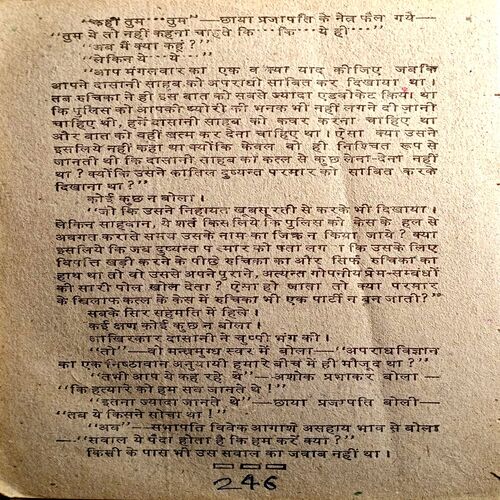 "कहीं तुम···तुम"—छाया प्रजापति के नेत्र फैल गये—
"तुम ये तो नहीं कहना चाहते कि···कि···ये ही···"
"अब मैं क्या कहूं ?"
"लेकिन ये···ये···"
"आप मंगलवार का एक वाक्या याद कीजिए जबकि
आपने दासानी साहब को अपराधी साबित कर दिखाया था ।
तब रुचिका ने ही इस बात को सबसे ज्यादा एडवोकेट किया था
कि पुलिस को आपकी थ्योरी की भनक भी नहीं लगने दी जानी
चाहिए थी, हमें दासानी साहब को कवर करना चाहिए था
और बात को वहीं खत्म कर देना चाहिए था । ऐसा क्या उसने
इसलिये नहीं कहा था क्योंकि केवल वो ही निश्चित रूप से
जानती थी कि दासानी साहब का कत्ल से कुछ लेना-देना नहीं
था ? क्योंकि उसने कातिल दुष्यन्त परमार को साबित करके
दिखाना था ?"
कोई कुछ न बोला ।
"जो कि उसने निहायत खूबसूरती से करके भी दिखाया ।
लेकिन साहबान, ये शर्त किस लिये कि पुलिस को केस के हल से
अवगत कराते समय उसके नाम का जिक्र न किया जाये ? क्या
इसलिये कि जब दुष्यन्त परमार को पता लगता कि उसके लिए
विपत्ति खड़ी करने के पीछे रुचिका का और सिर्फ रुचिका का
हाथ था तो वो उससे अपने पुराने, अत्यन्त गोपनीय प्रेम-सम्बंधों
की सारी पोल खोल देता ? ऐसा हो जाता तो क्या परमार
के खिलाफ कत्ल के केस में रुचिका भी एक पार्टी न बन जाती ?"
सबके सिर सहमति में हिले ।
कई क्षण कोई कुछ न बोला ।
आखिरकार दासानी ने चुप्पी भंग की ।
"तो"—वो मन्त्रमुग्ध स्वर में बोला—"अपराधविज्ञान
का एक निष्ठावान अनुयायी हमारे बीच में ही मौजूद था ?"
"तभी आप ये कह रहे थे"—अशोक प्रभाकर बोला—
"कि हत्यारे को हम सब जानते थे !"
"इतना ज्यादा जानते थे"—छाया प्रजापति बोली—
"तब ये किसने सोचा था !"
"अब"—सभापति विवेक आगाशे असहाय भाव से बोला
—"सवाल ये पैदा होता है कि हम करें क्या ?"
किसी के पास भी उस सवाल का जवाब नहीं था ।
246